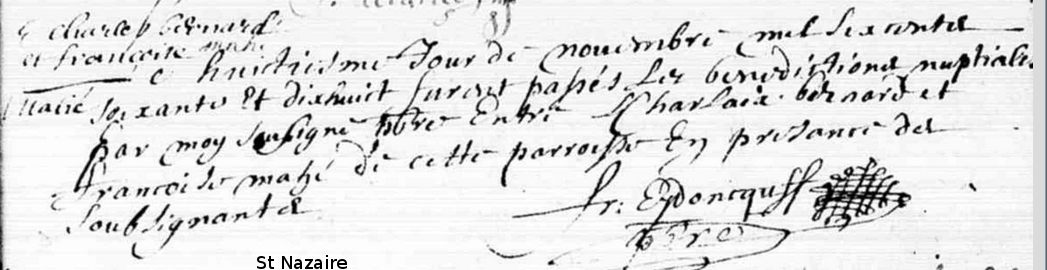 charles bernard
et françoise mahé
Le huictiesme Jour de novembre mil six centz
Marié
soixante Et dixhuict furent passés Les benedictions nuptiales
par moy soubsigné pbre Entre Charles bernard et
francoise mahé de cette parroisse En presance des
soubsignants
fr:
pbre
St Nazaire